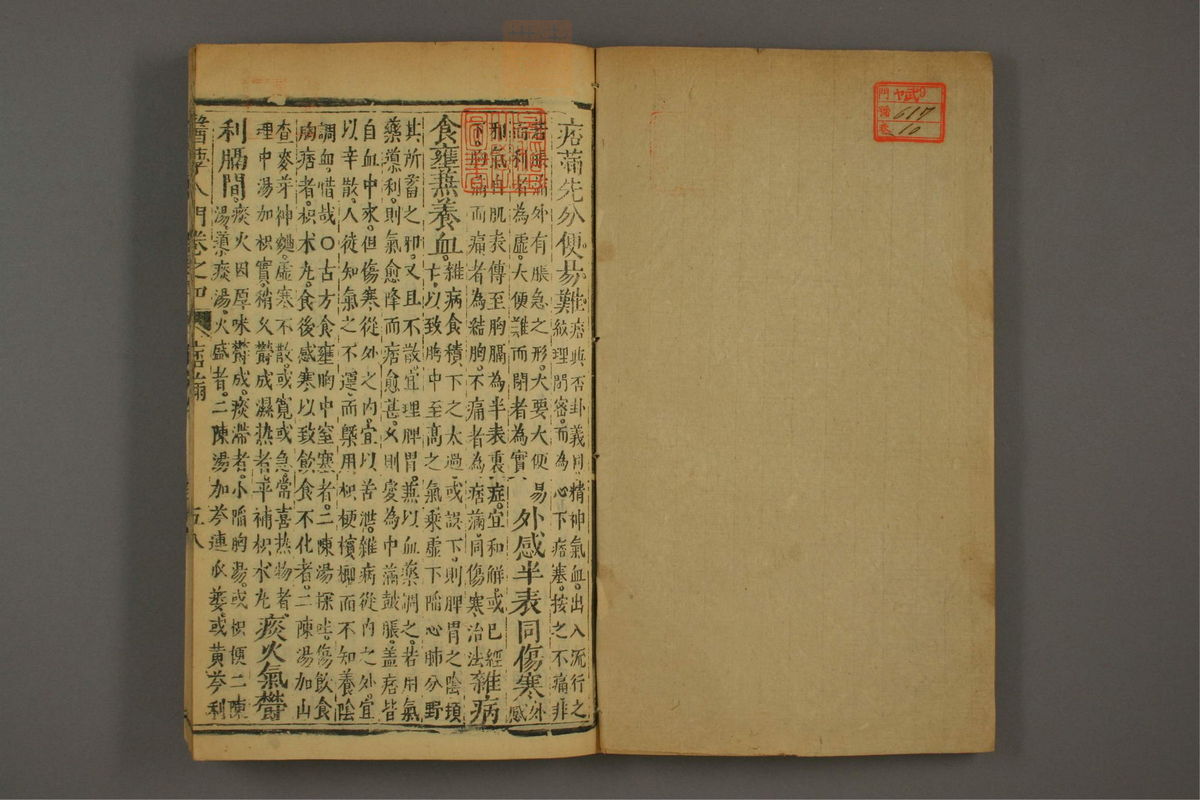 痞滿先分便易難
痞與否卦義同精神氣血出入流行之
紋理閉密而為心下痞塞按之不痛非
若脹滿外有脹急之形大要大便易
而利者為虛大便難而閉者為實
外感半表同傷寒
外
感
邪氣自肌表傳至胸膈為半表裏症宜和解或已經
下胸滿而痛者為結胸不痛者為痞滿同傷寒治法
雜病
食壅兼養血
雜病食積下之太過或誤下則脾胃之陰頓
亡以致胸中至高之氣乘虛下陷心肺分野
其所蓄之邪又且不散宜理脾胃兼以血藥調之若用氣
藥導利則氣愈降而痞愈甚久則變為中滿皷脹蓋痞皆
自血中來但傷寒從外之內宜以苦泄雜病從內之外宜
以辛散人徒知氣之不運而槩用枳梗檳榔而不知養陰
調血惜哉○古方食壅胸中窒塞者二陳湯探吐傷飲食
胸痞者枳朮丸食後感寒以致飲食不化者二陳湯加山
查麥芽神麯虛寒不散或寬或急常喜熱物者
理中湯加枳實稍久欝成濕熱者平補枳朮丸
痰火氣欝
利膈間
痰火因厚味欝成痰滯者小陷胸湯或枳梗二陳
湯導痰湯火盛者二陳湯加芩連瓜蔞或黃芩利
醫學入門卷之四 痞滿 五八
門 ヤ9
號 617
卷 10